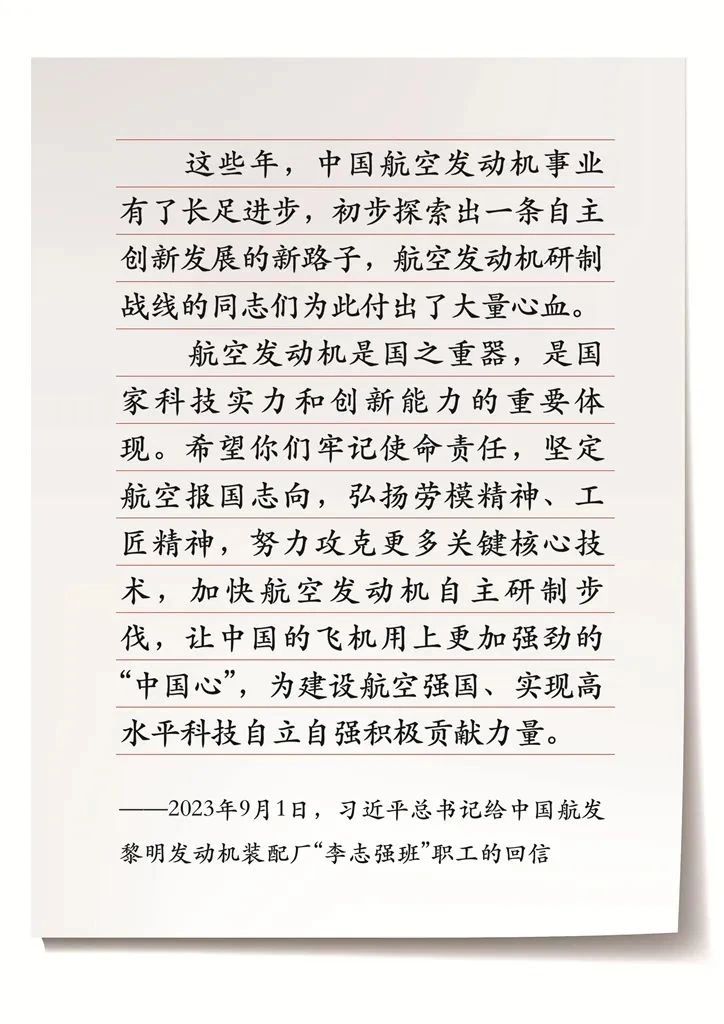 这些年，中国航空发动机事业
有了长足进步，初步探索出一条自主
创新发展的新路子，航空发动机研制
战线的同志们为此付出了大量心血。
航空发动机是国之重器，是国
家科技实力和创新能力的重要体
现。希望你们牢记使命责任，坚定
航空报国志向，弘扬劳模精神、工
匠精神，努力攻克更多关键核心技
术，加快航空发动机自主研制步
伐，让中国的飞机用上更加强劲的
“中国心”，为建设航空强国、实现高
水平科技自立自强积极贡献力量。
——2023年9月1日，习近平总书记给中国航发
黎明发动机装配厂“李志强班”职工的回信